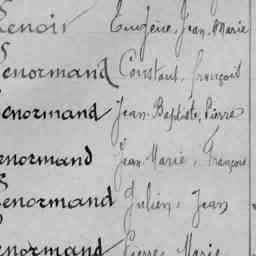 Lenoir Eugène, Jean Marie
Lenormand Constant, françois
Lenormand Jean-Baptiste, Pierre
Lenormand Jean Marie, François
Lenormand Julien, Jean
Lenormand Pierre Marie